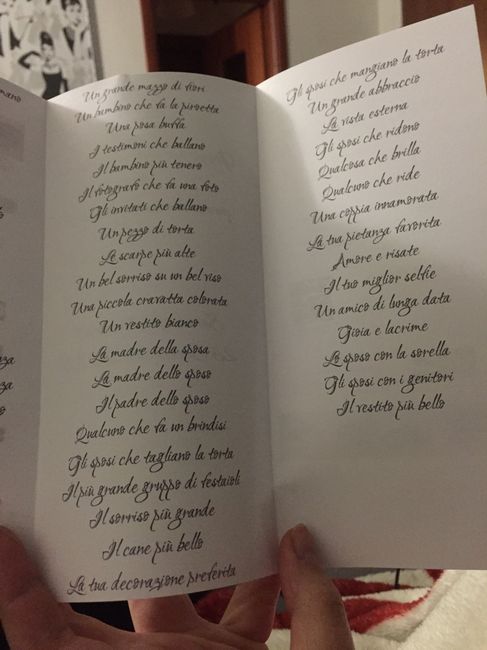 Un grande mazzo di fiori
Un bambino che fa la piroetta
Una posa buffa
I testimoni che ballano
Il bambino più tenero
Il fotografo che fa una foto
Gli invitati che ballano
Un pezzo di torta
Le scarpe più alte
Un bel sorriso su un bel viso
Una piccola cravatta colorata
Un vestito bianco
La madre della sposa
La madre dello sposo
Il padre dello sposo
Qualcuno che fa un brindisi
Gli sposi che tagliano la torta
Il più grande gruppo di festaioli
Il sorriso più grande
Il cane più bello
La tua decorazione preferita
Gli sposi che mangiano la torta
Un grande abbraccio
La vista esterna
Gli sposi che ridono
Qualcosa che brilla
Qualcuno che ride
Una coppia innamorata
La tua pietanza favorita
Amore e risate
Il tuo miglior selfie
Un amico di lunga data
Gioia e lacrime
Lo sposo con la sorella
Gli sposi con i genitori
Il vestito più bello